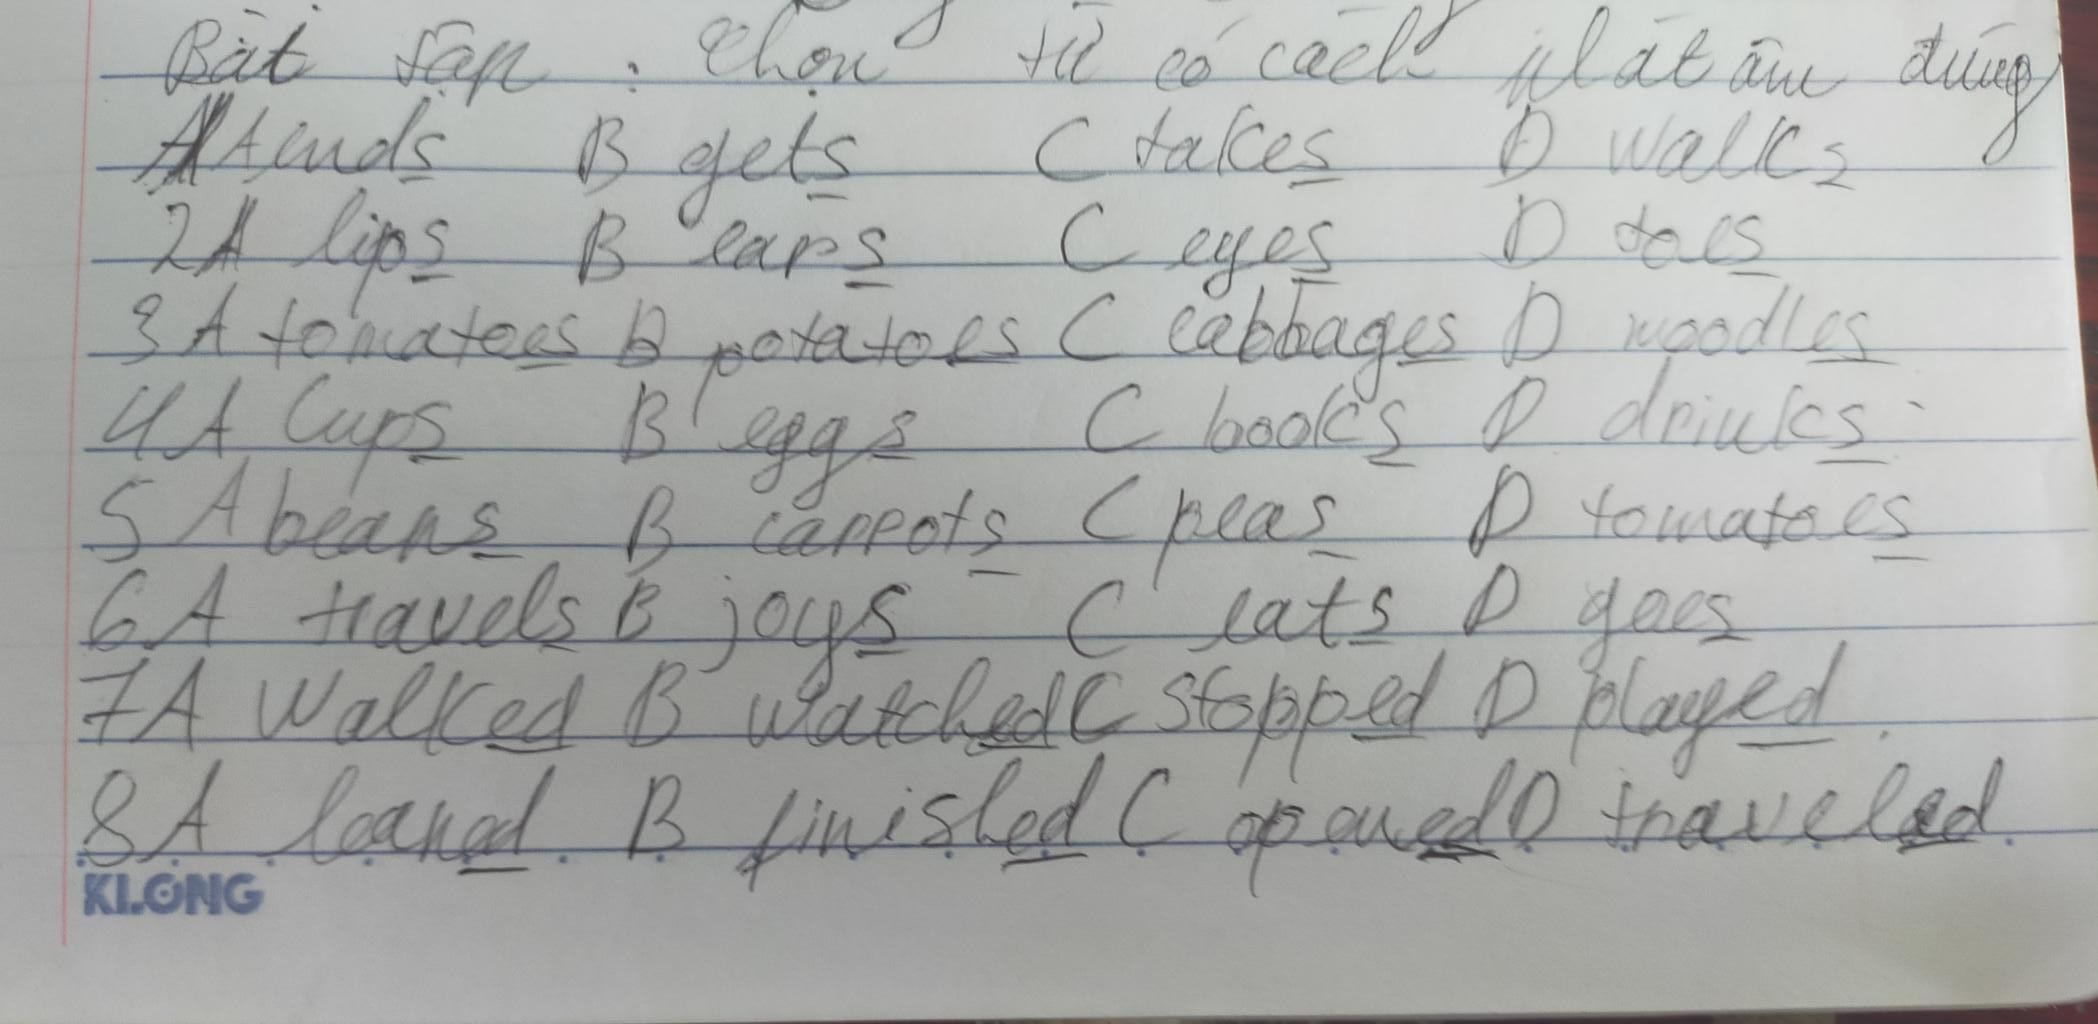 Bài tập : Chọn từ có cách phát âm đúng
1A ends B gets C takes D walks
2A lips B ears C eyes D toes
3A tomatoes B potatoes C cabbages D noodles
4A Cups B eggs C books D drinks
5 A beans B carrots C peas D tomatoes
6A travels B joys C eats D goes
7A Walked B watched C stopped D played
8A loaned B finished C opened D traveled
KLONG